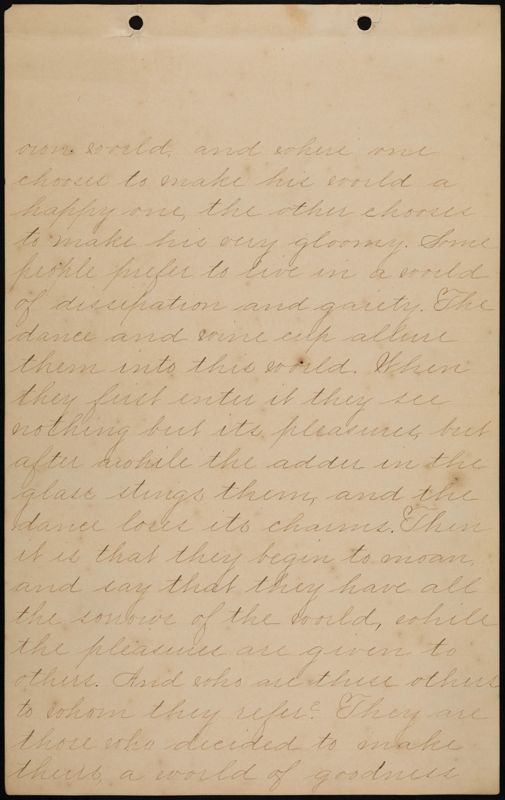 own world, and where one
chooses to make his world a
happy one, the other chooses
to make his very gloomy. Some
people prefer to live in a world
of dissipation and gaiety. The
dance and wine cup allure
them into this world. When
they first enter it they see
nothing but its pleasures, but
after awhile the adder in the
glass stings them, and the
dance loses its charms. Then
it is that they begin to moan,
and say that they have all
the sorrows of the world, while
the pleasures are given to
others. And who are these others
to whom they refer? They are
those who decided to make
theirs a world of goodness